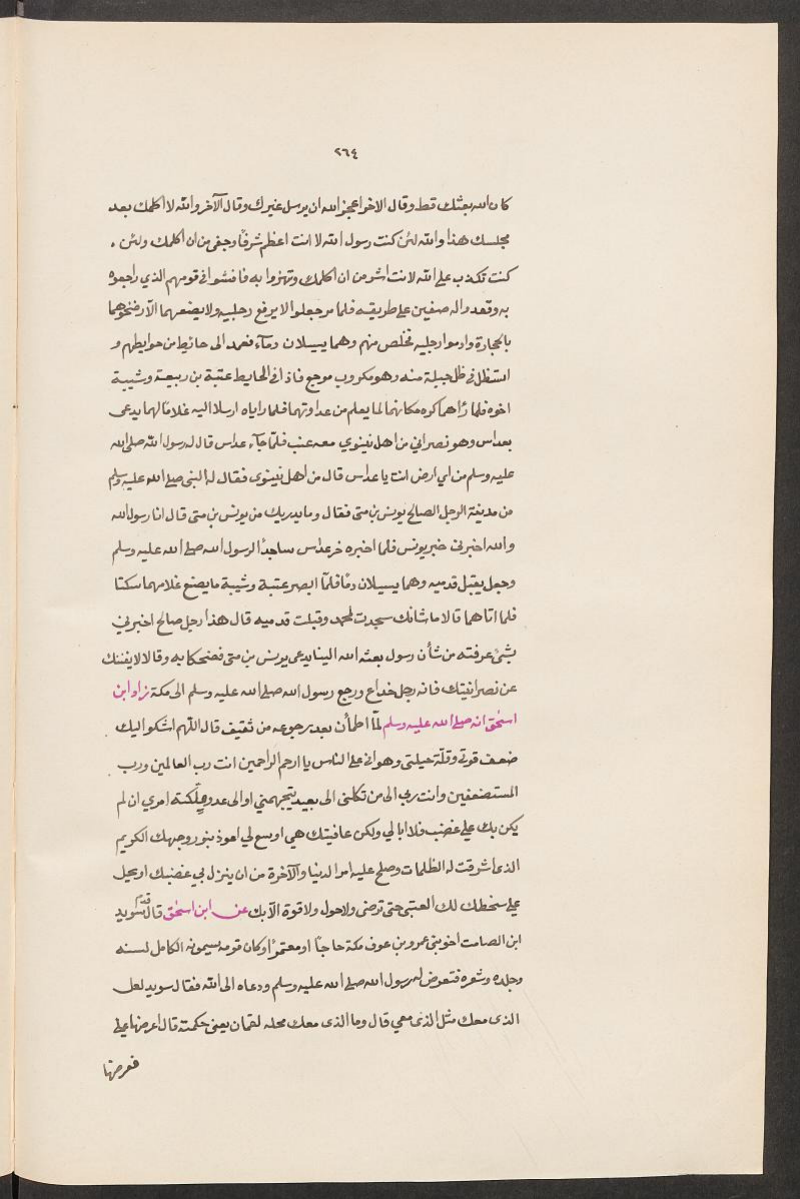 ٢٦٤
كان الله بعثك قط وقال الاخر اعجز الله ان يرسل غيرك وقال الآخر والله لا اكلمك بعد
مجلسك هذا والله لئن كنت رسول الله لا انت اعظم شرفًا وحقى من ان اكلمك ولئن
كنت تكذب على الله لانت اشر من ان اكلمك وتهزوا به فافشوا في قومهم الذي راجعوه
به وقعدوا له صفين على طريقه فلما مر جعلوا لا يرفع رجليه ولا يضعهما الا رضخوهما
بالحجارة وادموا رجليه فخلص منهم وهما يسيلان دمآء فعمد الى حائيط من حوايطهم و
استظل في ظل حبلة منه وهو مكروب موجع فاذا في الحايط عتبة بن ربيعة وشيبة
اخوه فلما رٔاهما كره مكانهما لما يعلم من عداوتهما فلما راياه ارسلا اليه غلامًا لهما يدعى
بعداس وهو نصراني من اهل نينوي معه عنب فلمّا جآء عداس قال له رسول الله صلى الله
عليه وسلم من اي ارض انت يا عداس قال من اهل نينوى فقال له النبى صلى الله عليه وسلم
من مدينة الرجل الصالح يونس بن متى فقال وما يدريك من يونس بن متى قال انا رسول الله
والله اخبرنى خبر يونس فلما اخبره خر عداس ساجدًا لرسول الله صلى الله عليه وسلم
وجعل يقبل قدميه وهما يسيلان دمًا فلمّا ابصر عتبة وشيبة ما يصنع غلامهما سكتا
فلما اتاهما قالا ما شانك سجدت لمحمد وقبلت قدميه قال هذا رجل صالح اخبرني
بشئ عرفته من شأن رسول بعثه الله الينا يدعى يونس بن متى فضحكا به وقالا لا يفتنك
عن نصرانيتك فانه رجل خداع ورجع رسول الله صلى الله عليه وسلم الى مكة زاد ابن
اسحق انه صلى الله عليه وسلم لمّا اطمأن بعد رجوعه من ثقيف قال اللهم اشكوا اليك
ضعف قوتي وقلّة حيلتى وهوانى على الناس يا ارحم الراحمين انت رب العالمين ورب
المستضعفين وانت ربي الى من تكلنى الى بعيد يتجهمني او الى عدو ملّكته امري ان لم
يكن بك علي غضب فلا ابالي ولكن عافيتك هي اوسع لي اعوذ بنور وجهك الكريم
الذى اشرقت له الظلمات وصلح عليه امر الدنيا والآخرة من ان ينزل بي غضبك او يحيل
علي سخطك لك العتبى حتى ترضى ولا حول ولا قوة الا بك عن ابن اسحق قال قدم سويد
ابن الصامت اخو بنى عمرو بن عوف مكة حاجًا او معتمرًا وكان قومه يسمونه الكامل لسنه
وجلده وشعره فتعرض له رسول الله صلى الله عليه وسلم ودعاه الى الله فقال سويد لعل
الذى معك مثل الذى معي قال وما الذى معك مجلة لقمان يعنى حكمته قال اعرضها علي
فعرضها